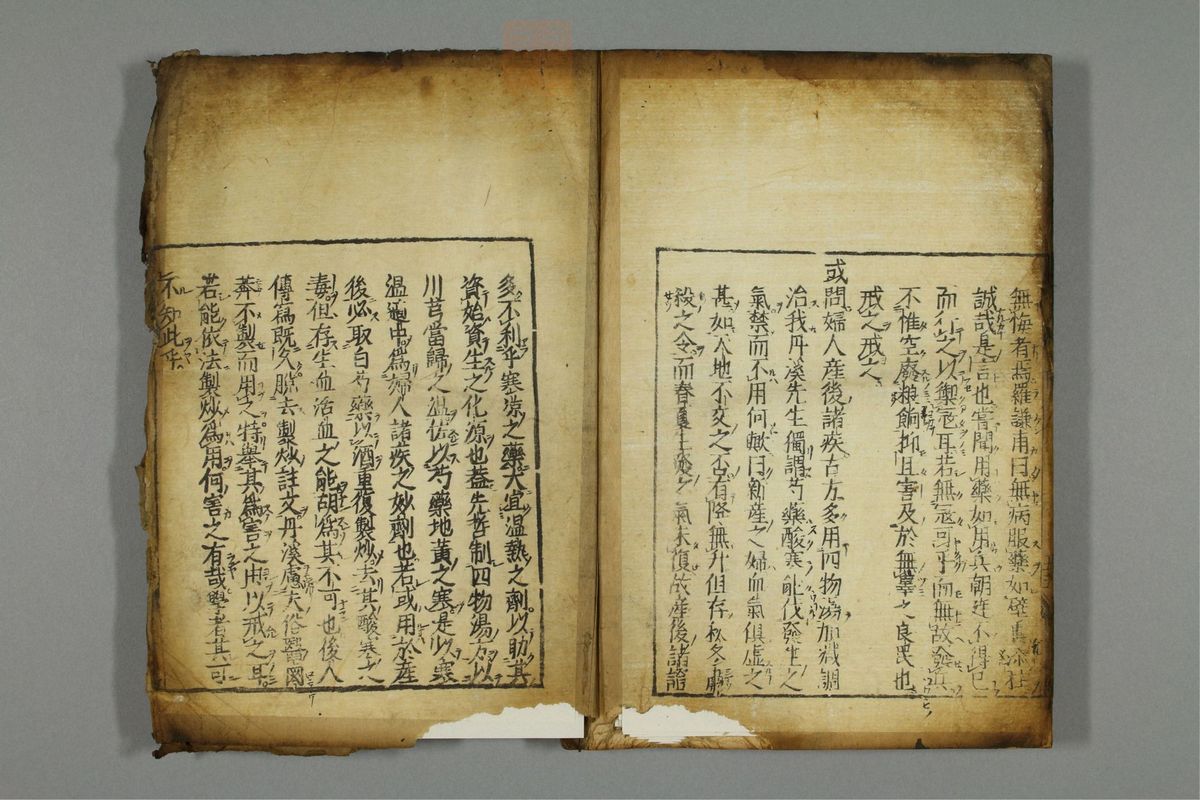 無悔者焉羅謙甫曰無病服藥如壁裏添柱
誠哉是言也嘗聞用藥如用兵朝廷不得已
而行之以禦寇耳若無寇可乎而無故發兵
不惟空廢粮餉抑且害及於無辜之良民也
戒之戒之
或問婦人産後諸疾古方多用四物湯加減調
治我丹溪先生獨謂芍藥酸寒能伐發生之
氣禁而不用何歟曰新産之婦血氣俱虚之
甚如天地不交之否有降無升但存秋冬肅
殺之令而春夏生發之氣未復故産後諸證
多不利乎寒凉之藥大宜温熱之劑以助其
資始資生之化源也蓋先哲制四物湯方以
川芎當歸之温佐以芍藥地黄之寒是以寒
温適中爲婦人諸疾之妙劑也若或用於産
後必取白芍藥以酒重復製炒去其酸寒之
毒但存生血活血之能胡爲其不可也後人
傳寫既久脱去製炒註文丹溪慮夫俗醫鹵
莽不製而用之特舉其爲害之由以戒之耳
若能依法製炒爲用何害之有哉學者其可
不知此乎